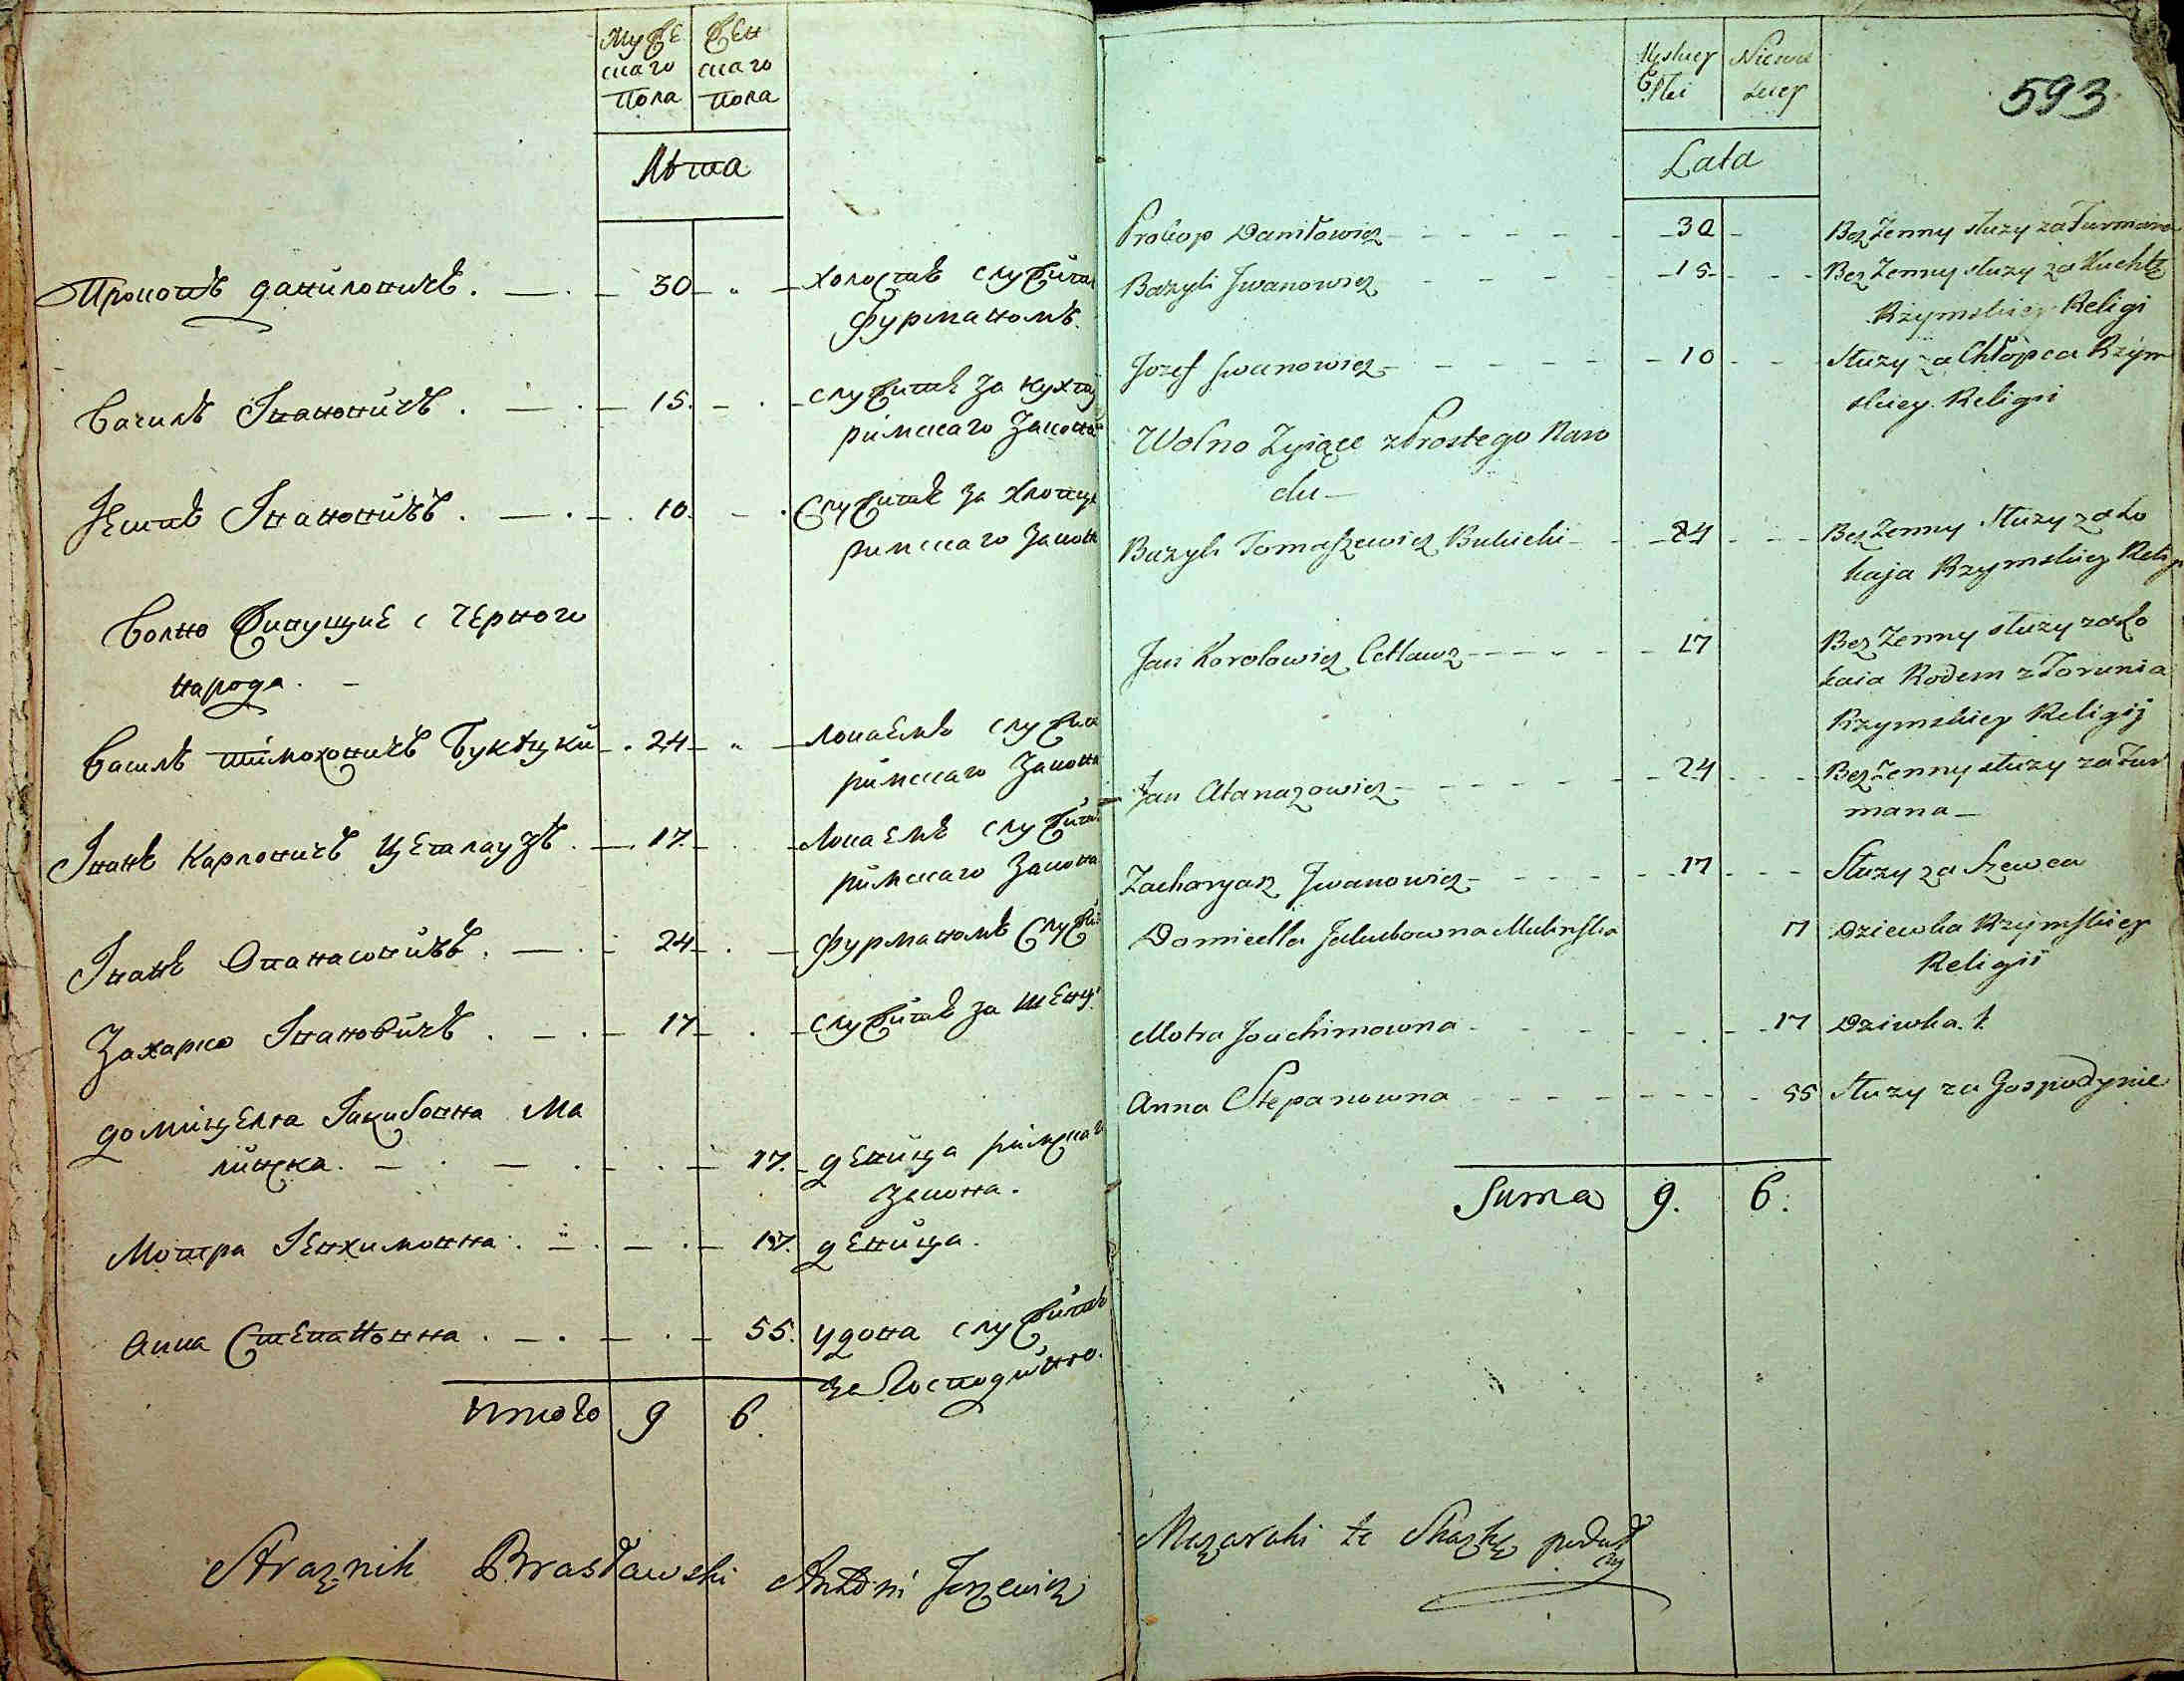 Мужескаго пола Женскаго пола
Лѣта
Прокопъ Даниловичъ . — . — 30 — „ — холостъ служитъ
фурманомъ.
Василь Ивановичъ . — . — 15. — . — служитъ за кухту
римскаго закона
Іосипъ Ивановичъ . — . — 10. — . служитъ за хлопца
римскаго закона
Волно живущие с черного
народа. —
Василь Тимоховичъ Букацки — . 24 — „ — локаемъ служитъ
римскаго закона
Іванъ Карловичъ Цеталаузъ . — . 17. — . — локаемъ служитъ
римскаго закона
Іванъ Опанасовичъ . — . — 24 — . — фурманомъ служитъ
Захарко Ивановичъ . — . — 17 — . — служитъ за шевца
Домицелла Якубовна Ма
линска. — . — . — . — 17. — девица римскаго
закона.
Мотра Іевхимовна . — . — . — 17. девица.
Анна Степановна . — . — . — 55. удова служитъ
за господиню.
итого 9 6.
Strażnik Brasławski Antoni Jerzewicz
593
Męskiey Płci Niewieściey
Lata
Prokop Daniłowicz - - - - - - 30 - Bez Żenny słuzy za Furmana
Bazyli Jwanowicz - - - - 15 - - - Bez Żenny słuzy za Kuchtę
Rzymskiey Religi
Jozef Jwanowicz - - - - - 10 - - Słuzy za Chłopca Rzym
skiey Religii
Wolno Zyiące z Prostego Naro
du —
Bazyli Tomaszewicz Bukicki - - 24 - - - Bez Żenny Słuzy za Lo
kaja Rzymskiey Religi
Jan Karolowicz Cetlawz - - - - - - 17 Bez Żenny słuzy za Lo
kaia Rodem z Torunia
Rzymskiey Religij
Jan Atanazowicz - - - - - - 24 - - - Bez Żenny słuzy za Fur
mana —
Zacharyasz Jwanowicz - - - - - 17 - - - Słuzy za Szewca
Domicella Jakubowna Malinska 17 Dziewka Rzymskiey
Religii
Motra Joachimowna - - - - - - 17 Dziwka. 1.
Anna Stepanowna - - - - - - - 55 Słuzy za Gospodynie
Suma 9. 6.
Mazaraki tę Skazkę podał